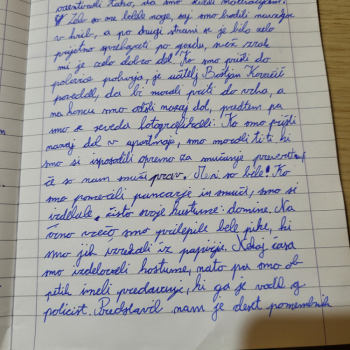 ocenjevali kako, da smo
Želo so me bolele noge, saj smo hodili navzgor
v hrib, a po drugi strani je je bilo zelo
prijetno sprehajati po gozdu, svež zrak
mi je zelo dobro del. Ko smo prišli do
polovice pohoda, je učitelj Boštjan Kovačič
povedal, da bi morali priti do vrha, a
na koncu smo odšli nazaj dol, predtem pa
smo se seveda fotografirali. Ko smo prišli
nazaj dol v apartmaje, smo morali iti ki
smo si izposodili opremo za smučanje preveriti,
če so nam smuči prav. Meni so bile! Ko
smo pomerili pancarje in smuči, smo si
izdelale čisto svoje kostume: domine. Na
črno vrečo smo prilepile bele pike, ki
smo jih izrezali iz papirja. Nekaj časa
smo izdelovali kostume, nato pa smo ob
petih imeli predavanje, ki ga je vodil g.
policist. Predstavil nam je deset pomembnih